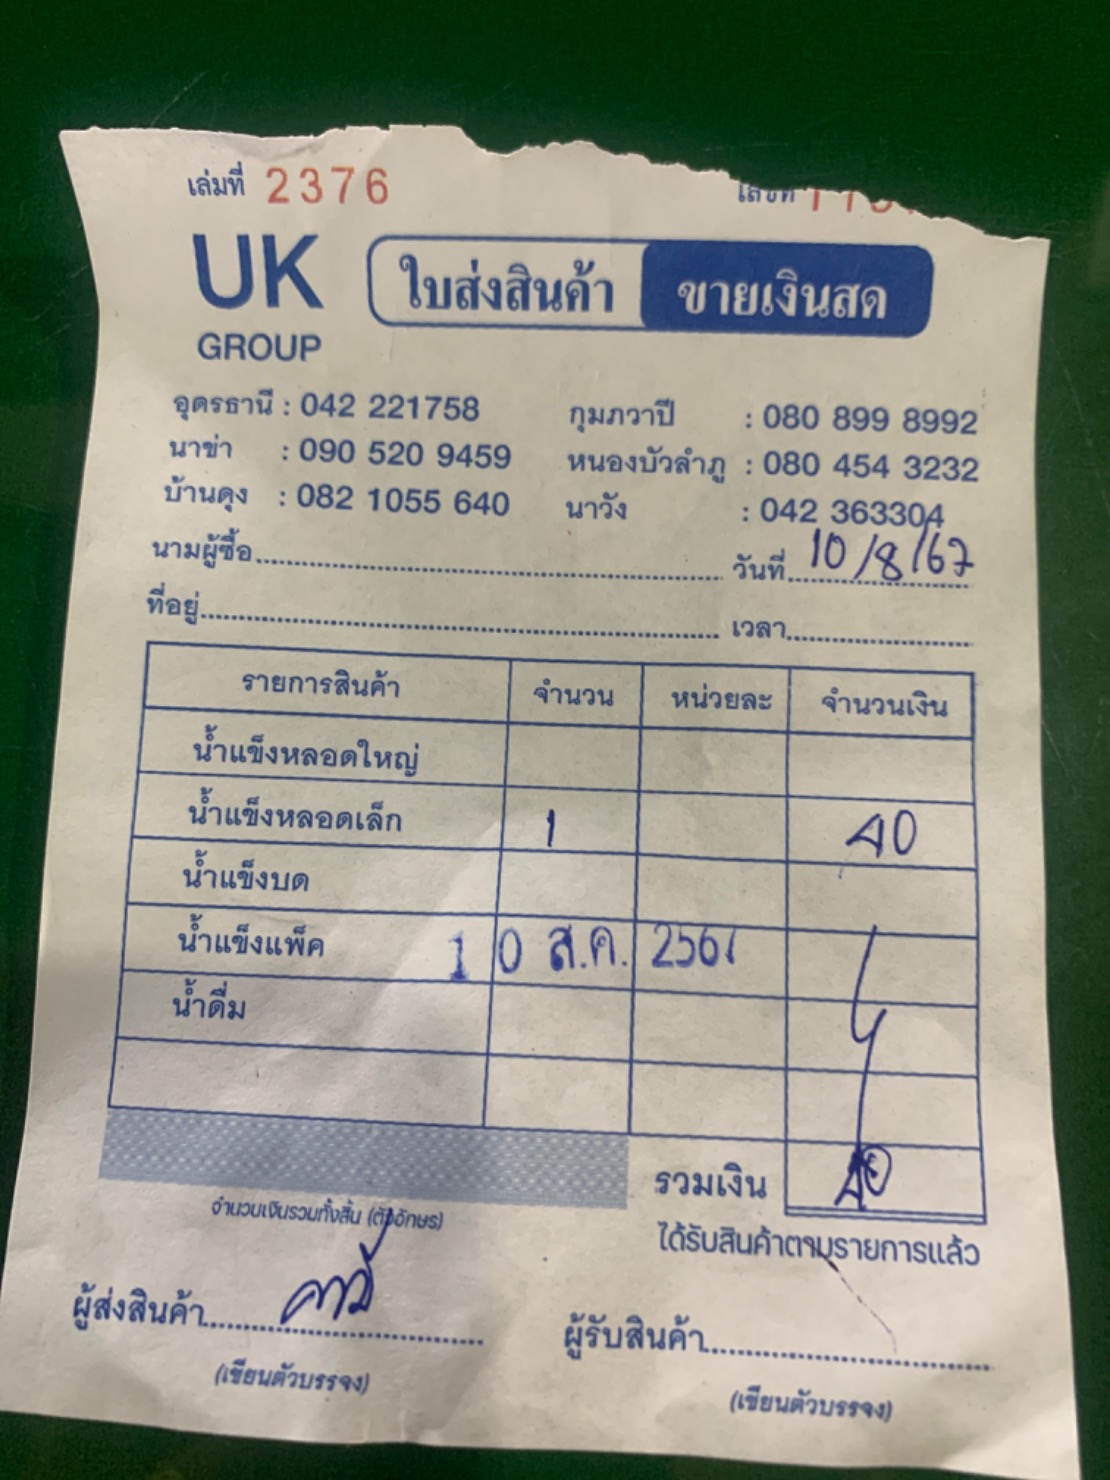 เล่มที่ 2376 เลขที่
UK GROUP
ใบส่งสินค้า ขายเงินสด
อุดรธานี : 042 221758 กุมภวาปี : 080 899 8992
นาข่า : 090 520 9459 หนองบัวลำภู : 080 454 3232
บ้านดุง : 082 1055 640 นาวัง : 042 363304
นามผู้ซื้อ วันที่ 10/8/67
ที่อยู่ เวลา
รายการสินค้า จำนวน หน่วยละ จำนวนเงิน
น้ำแข็งหลอดใหญ่
น้ำแข็งหลอดเล็ก 1 40
น้ำแข็งบด
น้ำแข็งแพ็ค 10 ส.ค. 2567
น้ำดื่ม
รวมเงิน 40
จำนวนเงินรวมทั้งสิ้น (ตัวอักษร)
ได้รับสินค้าตามรายการแล้ว
ผู้ส่งสินค้า ผู้รับสินค้า
(เขียนตัวบรรจง) (เขียนตัวบรรจง)